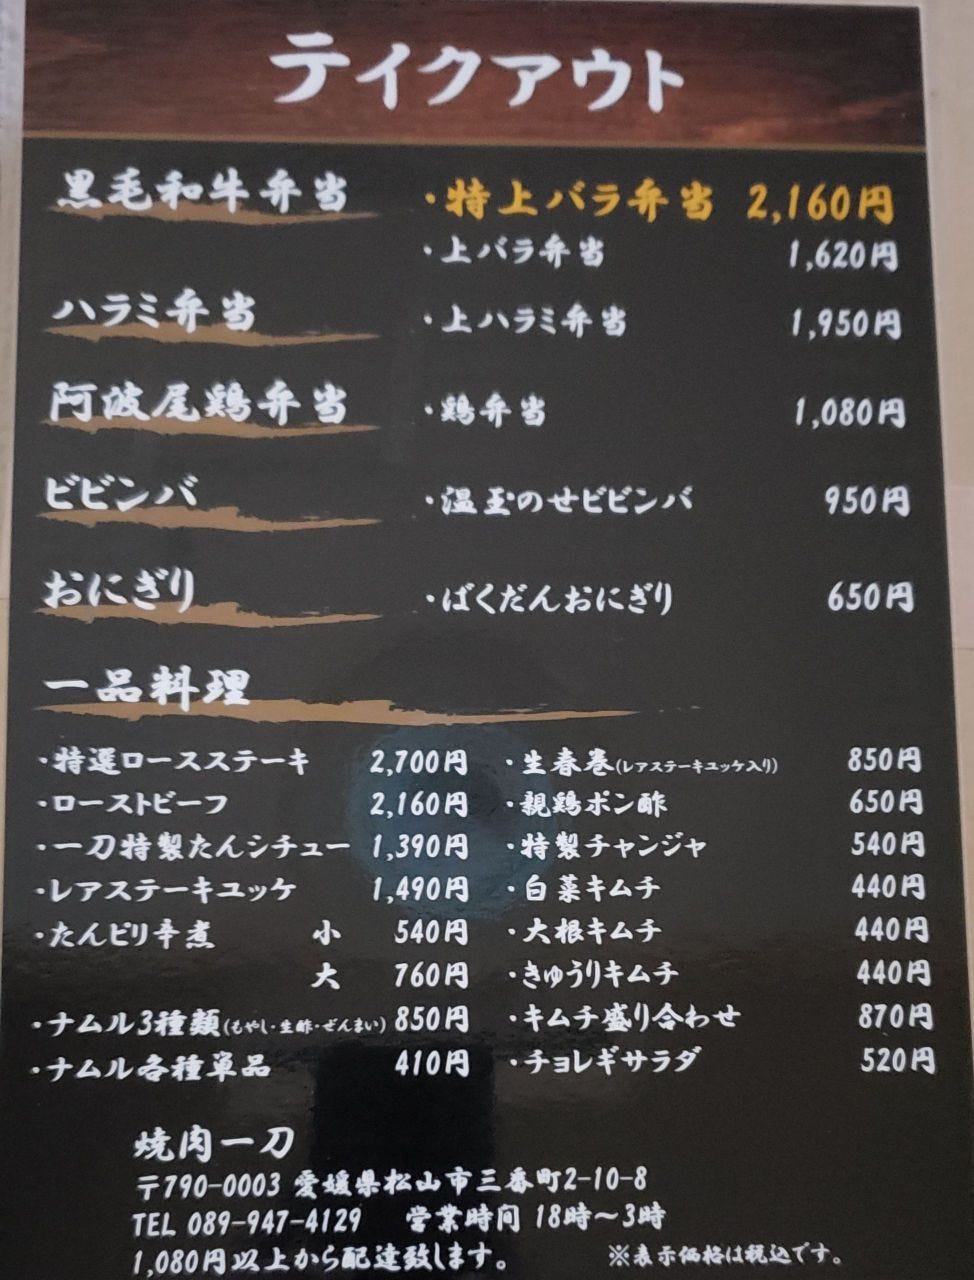 テイクアウト
黒毛和牛弁当 ・特上バラ弁当 2,160円
・上バラ弁当 1,620円
ハラミ弁当 ・上ハラミ弁当 1,950円
阿波尾鶏弁当 ・鶏弁当 1,080円
ビビンバ ・温玉のせビビンバ 950円
おにぎり ・ばくだんおにぎり 650円
一品料理
・特選ロースステーキ 2,700円
・ローストビーフ 2,160円
・一刀特製たんシチュー 1,390円
・レアステーキユッケ 1,490円
・たんピリ辛煮 小 540円
大 760円
・ナムル3種類(もやし・生酢・ぜんまい) 850円
・ナムル各種単品 410円
・生春巻(レアステーキユッケ入り) 850円
・親鶏ポン酢 650円
・特製チャンジャ 540円
・白菜キムチ 440円
・大根キムチ 440円
・きゅうりキムチ 440円
・キムチ盛り合わせ 870円
・チョレギサラダ 520円
焼肉一刀
〒790-0003 愛媛県松山市三番町2-10-8
TEL 089-947-4129 営業時間 18時～3時
1,080円以上から配達致します。 ※表示価格は税込です。